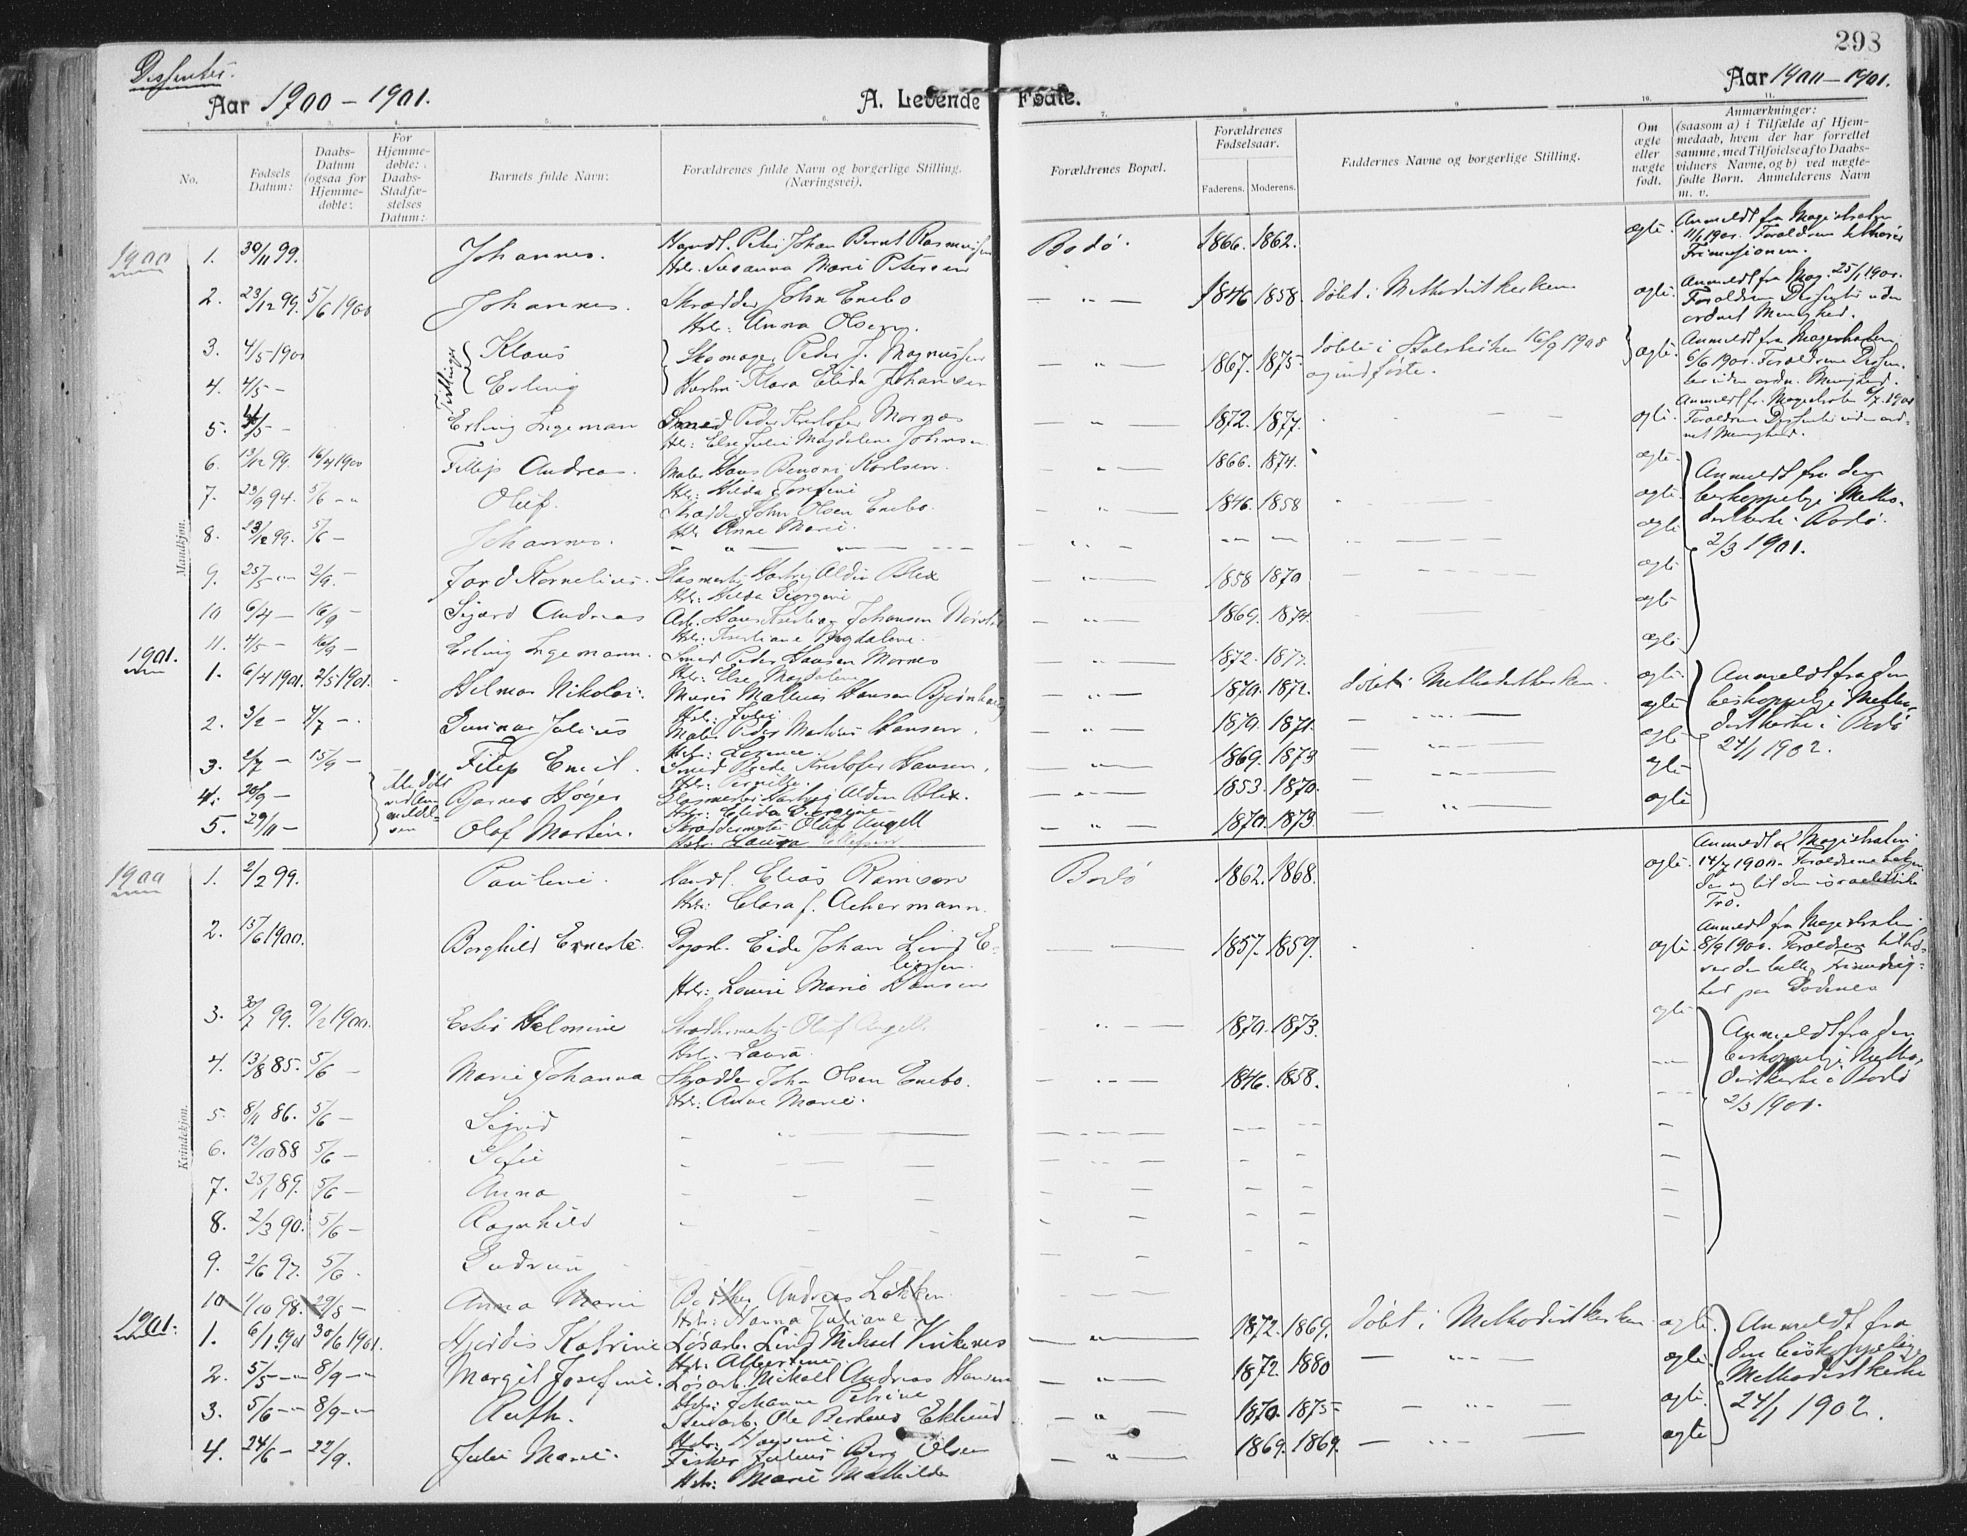 298
Dissenter.
Aar 1900 - 1901.
A. Levende Fødte.
Aar 1900-1901.
No.
Fødsels Datum:
Daabs-Datum (ogsaa for Hjemmedøbte:
For Hjemmedøbte: Daabs-Stadfæstelses Datum:
Barnets fulde Navn:
Forældrenes fulde Navn og borgerlige Stilling. (Næringsvei).
Forældrenes Bopæl.
Forældrenes Fødselsaar.
Faderens. Moderens.
Faddernes Navne og borgerlige Stilling.
Om ægte eller nægte født.
Anmærkninger: (saasom a) i Tilfælde af Hjemmedaab, hvem der har forrettet samme, med Tilføielse af to Daabsvidners Navne, og b) ved nægtefødte Børn. Anmelderens Navn m. v.
Mandkjøn.
1900
1. 30/11 99. Johannes. Handl. Peter Johan Bernt Rasmussen Bodø. 1866. 1862. ægte. Anmeldt fra Magistraten
Hstr. Susanna Marie Petersen Frimissionen.
2. 23/12 99. 5/6 1900 Johannes. Skrædder John Enebo — " — 1846 1858. døbt i Methodistkirken ægte. Anmeldt fra Mag. 25/1 1900.
Hstr: Anna Olsen. Forældrene Dissenter uden ordnet Menighed.
Tvillinger
3. 4/5-1900 Klaus Skomager Peder J. Magnussen — " — 1867. 1875 døbte i Statskirken 16/9 1908 ægte. Anmeldt fra Magistraten
4. 4/5 — Erling Hustru Klara Elida Johansen og indførte. 6/6 1900. Forældrene Dissenter uden ordn. Menighed.
5. 4/5 — Erling Ingeman Smed Peder Kristofer Mornæs — " — 1872. 1877. ægte. Anmeldt fr. Magistraten 6/7 1900
Hstr: Else Julie Magdalene Johnsen Forældrene Dissenter uden ordnet Menighed.
6. 13/12 99. 16/4 1900 Fillip Andreas. Maler Hans Benoni Karlsen. — " — 1866. 1874. ægte. Anmeldt fra den
Hstr: Hilda Josefine
7. 23/9 94. 5/6 — " Oluf. Skrædder John Olsen Enebo. — " — 1846. 1858 ægte. biskoppelige Methodistkirke i Bodø.
Hstr Anne Marie.
8. 23/12 99. 5/6 — Johannes. — " — " — ægte 2/3 1901.
9. 25/5 — " 2/9. — Jord Kornelius. Glasmester Hartvig Aldin Blix — " — 1858 1870 ægte
Hstr: Hilda Georgine
10 6/4 — 16/9 — Sigurd Andreas Arb. Hans Kristian Johansen — " — 1869. 1874. ægte
Hstr: Kristiane Magdalene.
11. 4/5 — 16/9 — Erling Ingemann. Smed Peder Hansen Mornes — " — 1872. 1877. ægte.
Hstr: Else Magdalene
1901.
1. 6/4 1901. 2/5 1901. Hilmar Nikolai. Murer Mathias Hansen — " — 1870. 1872. døbt i Methodistkirken. ægte. Anmeldt fra den
Hstr: Julie
2. 3/2 — 4/7 —. Gunnar Julius Maler Peder Mathias Hansen. — " — 1870. 1871. ægte biskoppelige Methodistkirke i Bodø
Hstr: Lorence.
3. 2/7 — 15/9 — Filip Emil. Smed Peder Kristofer Hansen. — " — 1869. 1873 ægte 24/1 1902.
Hstr: Pernille.
4. 20/9 — Ikke døbt ved Anmeldelsen Bjarne Høyer Glasmester Hartvig Alden Blix. — " — 1853. 1870. ægte
5. 29/11 — Olaf Martin. Skræddermester Oluf Angell — " — 1870. 1873. ægte
Hstr: Laura
Kvindekjøn.
1900
1. 2/2 99. Pauline. Handl. Elias Ramson Bodø 1862. 1868. ægte. Anmeldt af Magistraten
Hstr: Clara f. Achermann. 14/2 1900. Forældrene bekjender sig til den israelitiske Tro.
2. 15/6 1900. Borghild Erneste. Eide Johan Lind Eliassen. 1857. 1859. ægte Anmeldt fra Magistraten
Hstr: Lovise Marie Hansen 8/9 1900. Forældrene tilhører den
3. 30/7 99. 9/2 1900. Ester Helmine Skræddermester Oluf Angell — " — 1870. 1873. ægte. Anmeldt fra den
Hstr. Laura.
4. 13/8 85. 5/6 — Marie Johanna Skrædder John Olsen Enebo. — " — 1846. 1858. biskoppelige Methodistkirke i Bodø
Hstr: Anne Marie. 2/3 1901.
5. 8/11 86. 5/6 — Sigrid
6. 12/10 88 5/6 — Sofie
7. 25/1 89. 5/6 — Anna
8. 2/3 90. 5/6 — Ragnhild
9. 2/6 97. 5/6. Gudrun
10 1/10 98. 29/8 — Anna Marie Bødker Andreas Løkken
Hstr. Hanna Juliane
1901.
1. 6/1 1901 30/6 1901. Hjørdis Katrine Løsarb. Lind Mikael Vinkenes — " — 1872. 1869. døbt i Methodistkirken. ægte. Anmeldt fra
Hstr. Albertine
2. 5/5 — " 8/9 — " Margit Josefine. Løsarb. Mikael Andreas Hansen — " — 1872. 1880 ægte den biskoppelige
Hstr: Johanne Petrine
3. 5/6 — " 8/9 — " Ruth. Stenarb. Ole Berdines Eklund — " — 1870. 1875 ægte Methodistkirke
4. 24/6 — 22/9. Julie Marie. Fisker Julius Berg Olsen " 1869. 1869. ægte 24/1 1902.
Hstr: Marie Mathilde